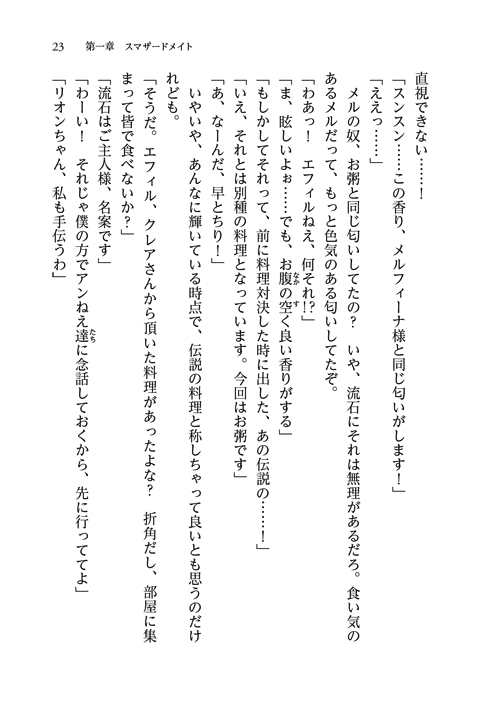 23　第一章　スマザードメイト
直視できない……！
「スンスン……この香り、メルフィーナ様と同じ匂いがします！」
「ええっ……」
　メルの奴、お粥と同じ匂いしてたの？　いや、流石にそれは無理があるだろ。食い気の
あるメルだって、もっと色気のある匂いしてたぞ。
「わあっ！　エフィルねえ、何それ!?」
「ま、眩しいよぉ……でも、お腹の空く良い香りがする」
「もしかしてそれって、前に料理対決した時に出した、あの伝説の……！」
「いえ、それとは別種の料理となっています。今回はお粥です」
「あ、なーんだ、早とちり！」
　いやいや、あんなに輝いている時点で、伝説の料理と称しちゃって良いとも思うのだけ
れども。
「そうだ。エフィル、クレアさんから頂いた料理があったよな？　折角だし、部屋に集
まって皆で食べないか？」
「流石はご主人様、名案です」
「わーい！　それじゃ僕の方でアンねえ達に念話しておくから、先に行っててよ」
「リオンちゃん、私も手伝うわ」